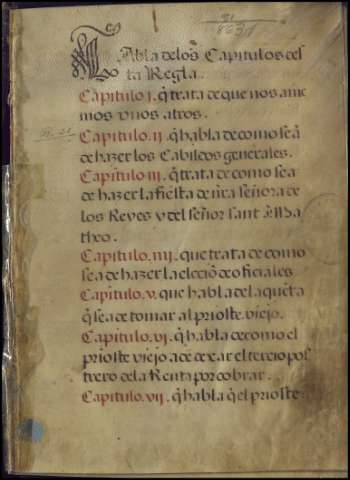 Tabla delos Capitulos des
ta Regla.
Capitulo. I. q̃ trata de que nos ame
mos unos a tros.
Capitulo. II. q̃ habla de como se ã
de hazer los Cabildos generales.
Capitulo. III. q̃ trata de como se a
de hazer la fiesta de nr̃a señora de
los Reyes y del señor sant Ma
theo.
Capitulo. IIII. que trata de como
se a de hazer la eleciõ de oficiales.
Capitulo. V. que habla dela quẽta
q̃ se a de tomar al prioste viejo.
Capitulo. VI. q̃ habla de como el
prioste viejo a de dexar el tercio pos
trero dela Renta por cobrar.
Capitulo. VII. q̃ habla q̃ el prioste